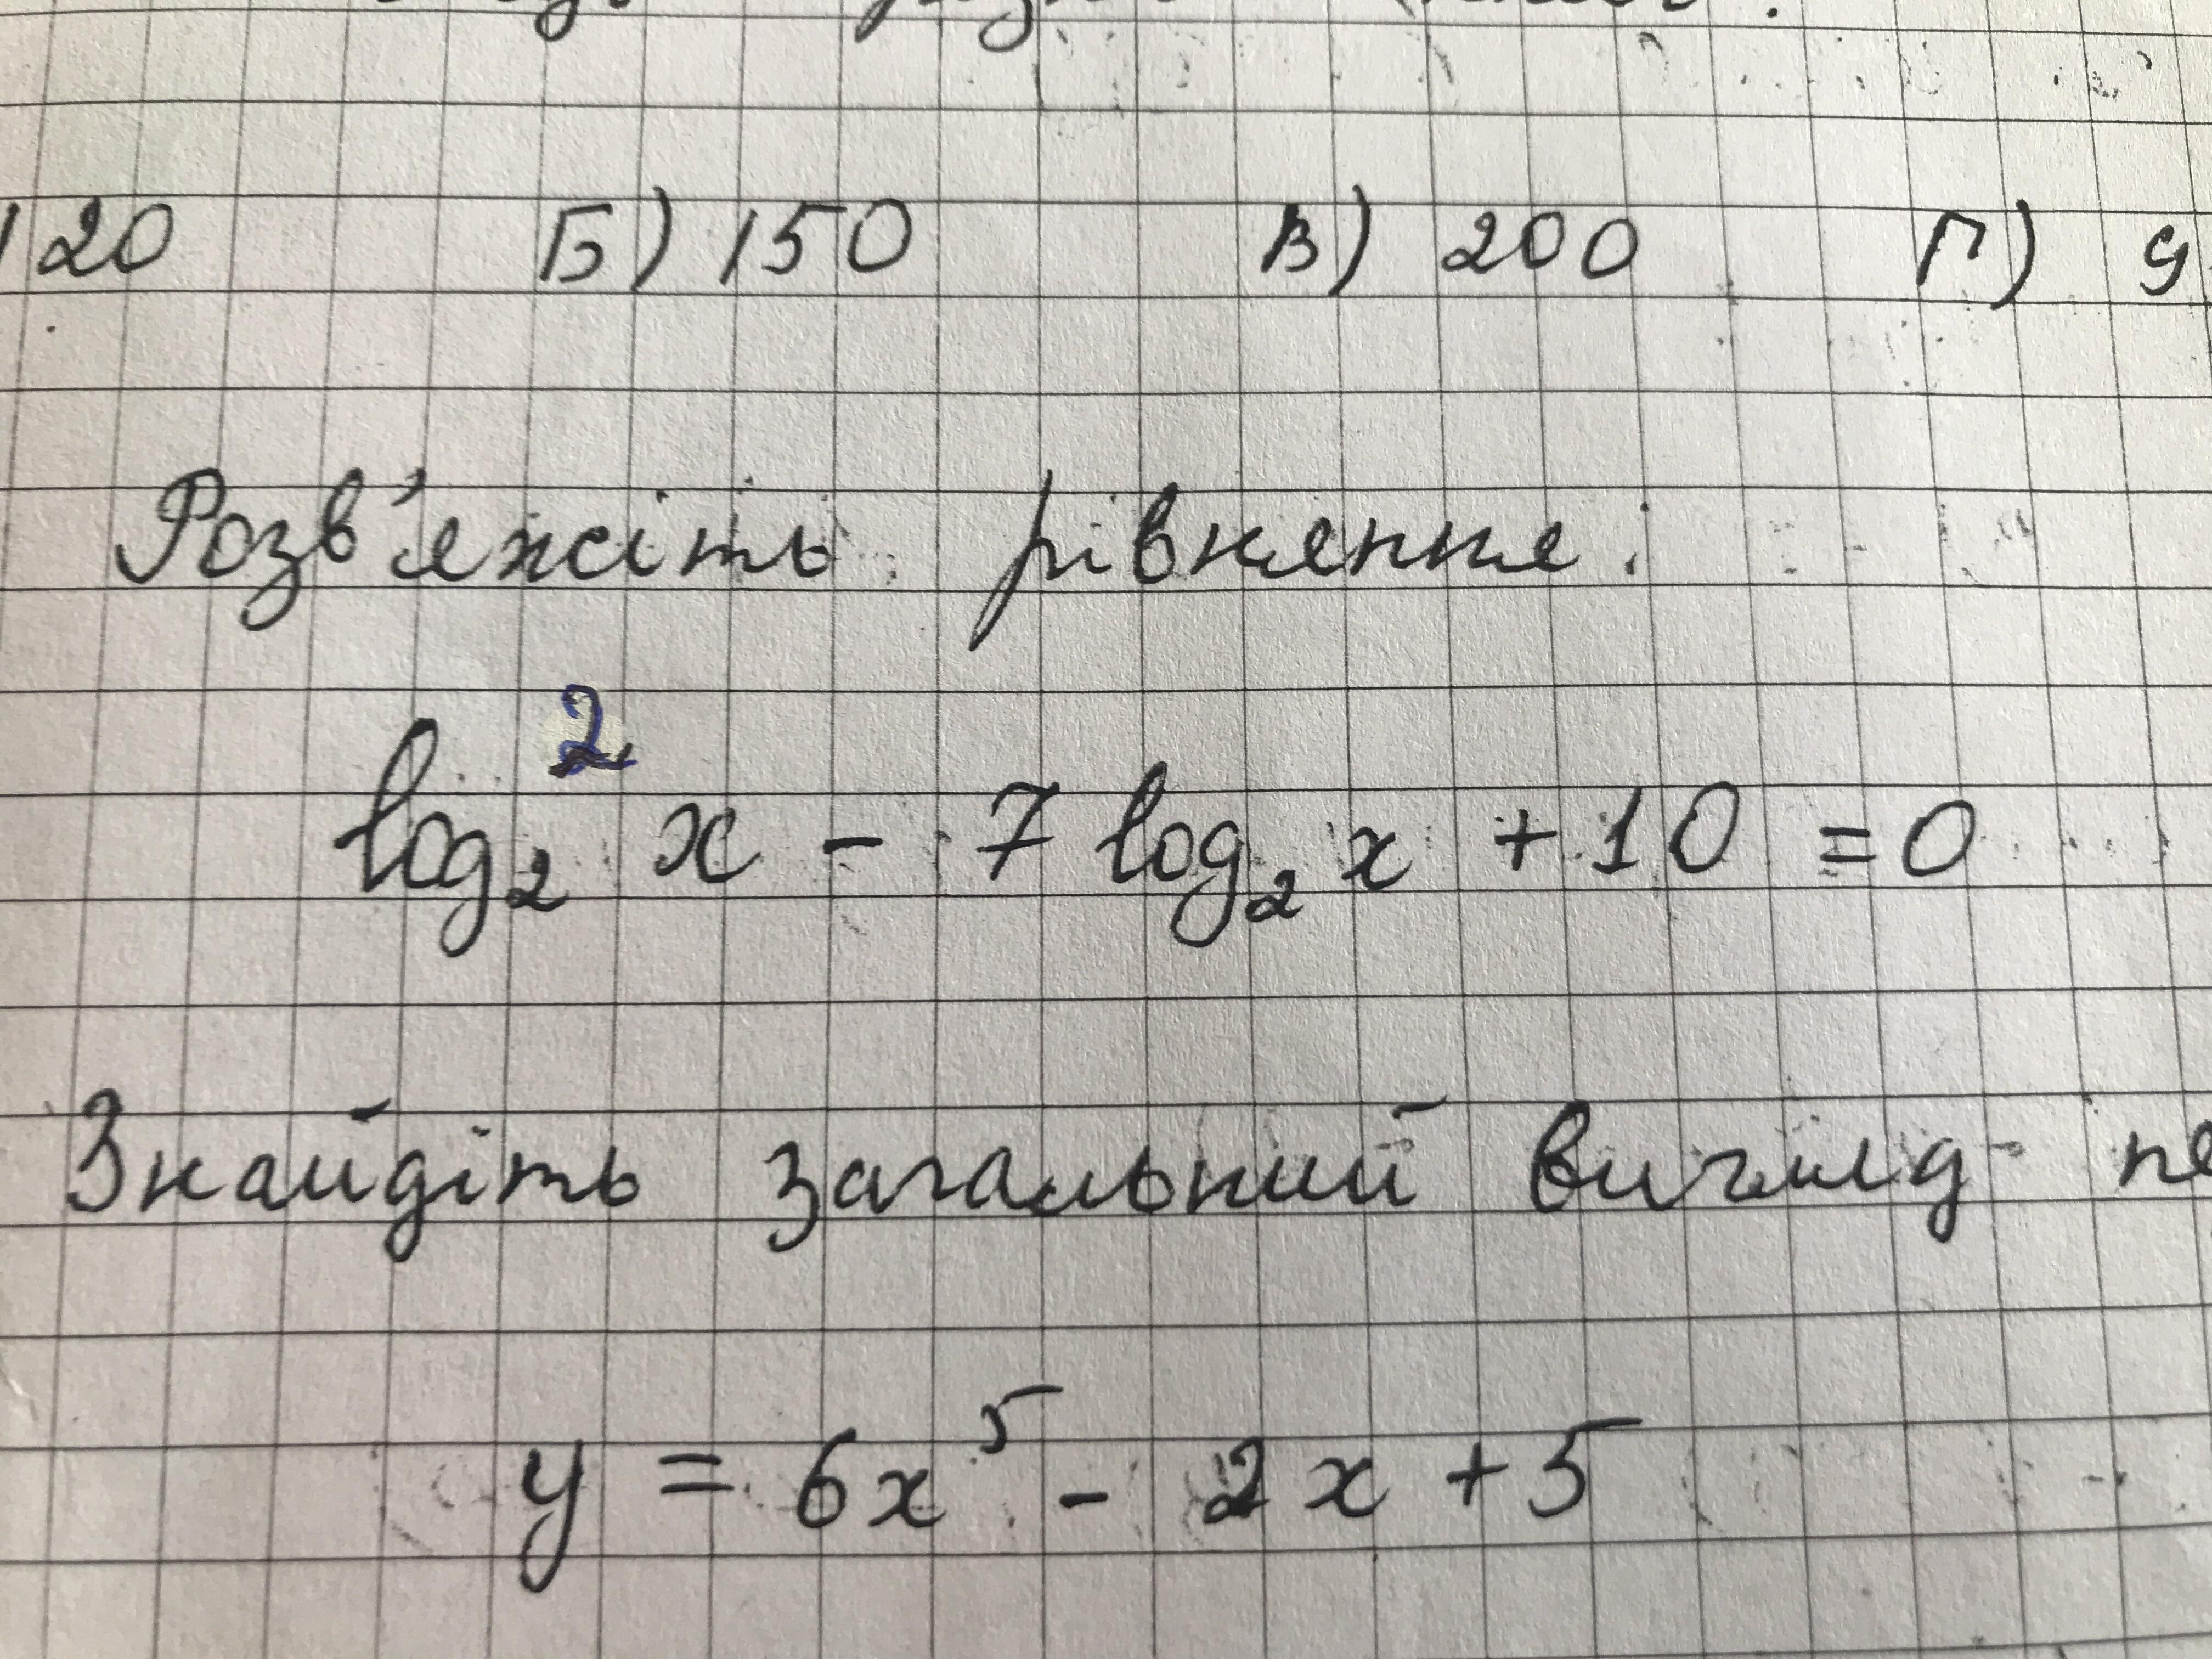 120 Б) 150 В) 200 Г)
Розв'яжіть рівняння:
log₂² x - 7 log₂ x + 10 = 0
Знайдіть загальний вигляд
y = 6x⁵ - 2x + 5